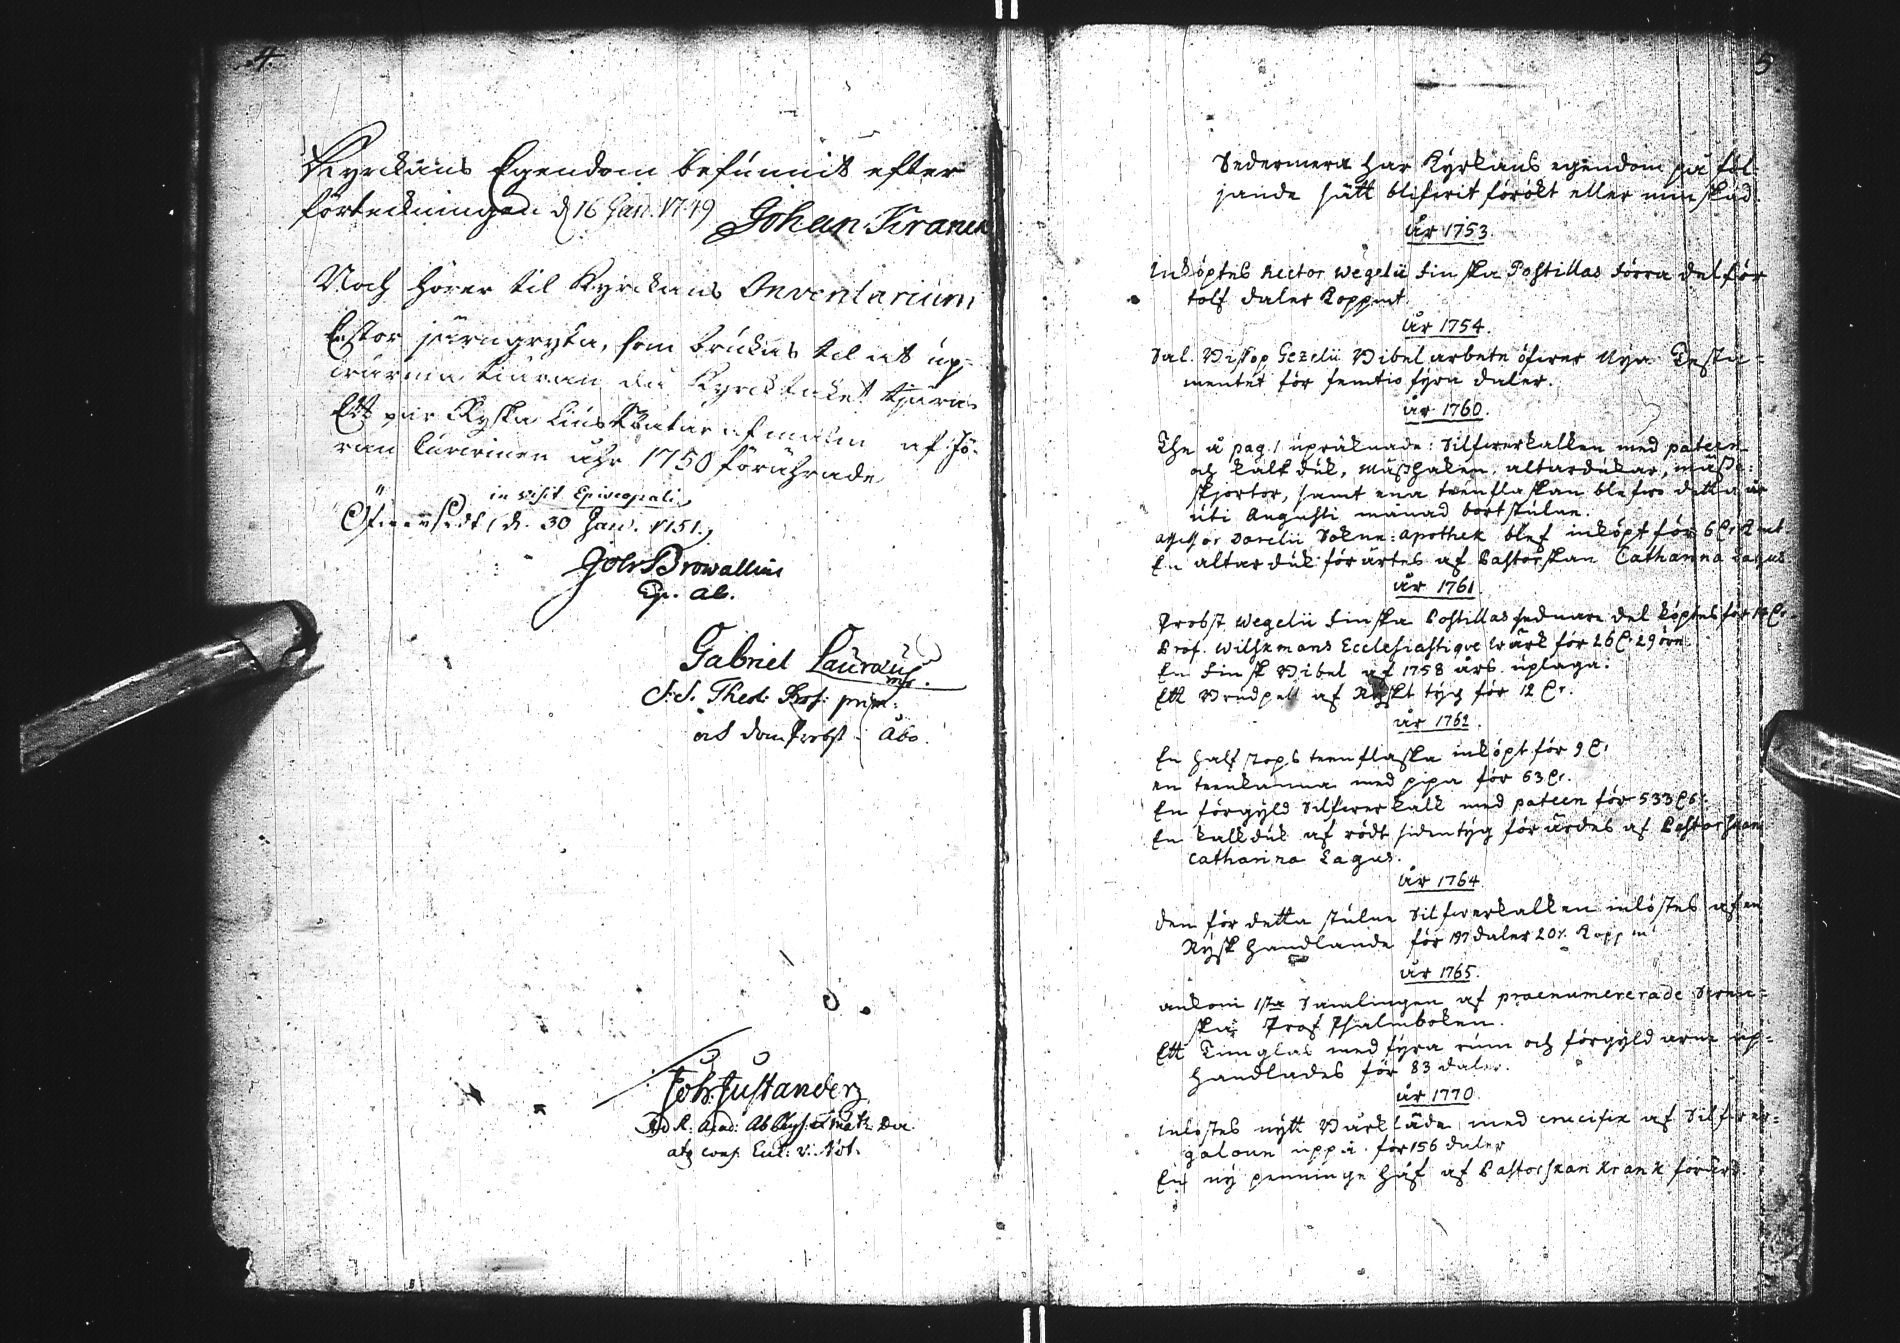 4.
Kyrckans Egendom befunnits efter
förteckningen d 16 Jan. 1749 Johan Kranck
Noch hörer til Kyrckans Inventarium
En stor järngryta, som brukas til at up-
wärma tiäran då Kyrcktaket tjäras
Ett par Ryska Lius af malm af Jö-
ran uhr 1750 förährade
in visit Episcopali
Öfwersedt, d. 30 Jan. 1751.
Joh Browallius
Ep. Ab.
Gabriel Lauraeus
S: S. Theol: Prof: prim:
och domProbst i Åbo.
Joh: Justander
atq cons: Eccl: v. Not.
5
Sedermera har Kyrkans egendom på föl-
jande sätt blifwit förökt eller minskad.
år 1753.
Inköptes Rector Wegelii Finska Postillas förra del för
tolf daler Koppmt.
år 1754.
Sal. Biskop Gezelii Bibel arbete öfwer Nya Testa=
mentet för femtio fyra daler.
år 1760.
The å pag. 1 upräknade: Silfwerkalken med pateen
och kalkduk, mässhaken, altardukar, mässe=
skjortor, samt ena tennflaskan blefwo detta år
uti Augusti månad bortstulne.
Assessor Darelii Sokne-apothek blef inköpt för 6 Kmt
En altarduk förärtes af Pastorskan Catharina Lagus
år 1761
Probst Wegelii Finska Postillas sednare del köptes för
Prof. Wilskmans Ecclesiastique wärk för 26 29 öre.
En Finsk Bibel af 1758 års uplaga.
Ett Brudpell af Ryskt tyg för 12
år 1762.
En half stops tennflaska inköpt för 9
en tennkanna med pipa för 63
En förgyld Silfwerkalk med pateen för 533
En kalkduk af rödt sidentyg förärdes af Pastorskan
Catharina Lagus.
år 1764
Den för detta stulne Silfwerkalken inlöstes af en
Rysk handlande för 197 daler 20 Koppm
år 1765.
ankom 1sta Samlingen af praenumererade Swen=
ska Prof Psalmboken.
Ett Timglas med fyra rum och förgyld arm up=
handlades för 83 daler.
år 1770
Inlöstes nytt Bårkläde med crucifix af Silfwer=
galoun uppå för 156 daler
En ny penninge håf af Pastorskan Kranck förärd.